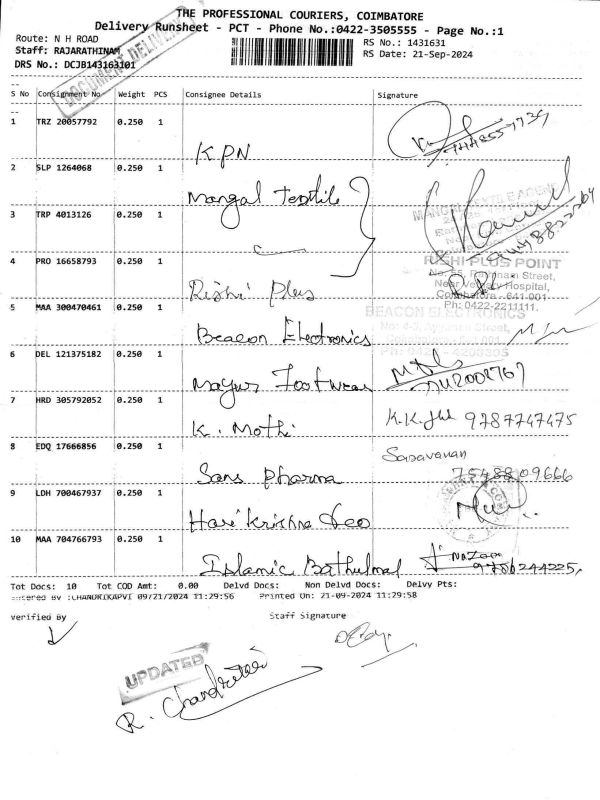 THE PROFESSIONAL COURIERS, COIMBATORE
Delivery Runsheet - PCT - Phone No.:0422-3505555 - Page No.:1
Route: N H ROAD
RS No.: 1431631
Staff: RAJARATHINAM,
RS Date: 21-Sep-2024
DRS No.: DCJB143163101
DOCUMENT DELIVERY
S No Consignment No Weight PCS Consignee Details Signature
1 TRZ 20057792 0.250 1
KPN
2 SLP 1264068 0.250 1
Mangal Textile
3 TRP 4013126 0.250 1
4 PRO 16658793 0.250 1
RISHI PLUS POINT
No. 55, Rangnam Street,
Near Hospital,
Coimbatore - 641 001
Ph: 0422-2211111.
Rishi Plus
5 MAA 300470461 0.250 1
BEACON ELECTRONICS
Beacon Electronics
6 DEL 121375182 0.250 1
Mayur Footwear
7 HRD 305792052 0.250 1
K. Mothi 9787747475
8 EDQ 17666856 0.250 1
Saravanan
Sans Pharma 7548809666
9 LDH 700467937 0.250 1
Hari Krishna Geo
10 MAA 704766793 0.250 1
Islamic Bathulmal 9786244225
Tot Docs: 10 Tot COD Amt: 0.00 Delvd Docs: Non Delvd Docs: Delvy Pts:
Entered By :CHANDRIKAPVI 09/21/2024 11:29:56 Printed On: 21-09-2024 11:29:58
Verified By Staff Signature
UPDATED
R. Chandrika